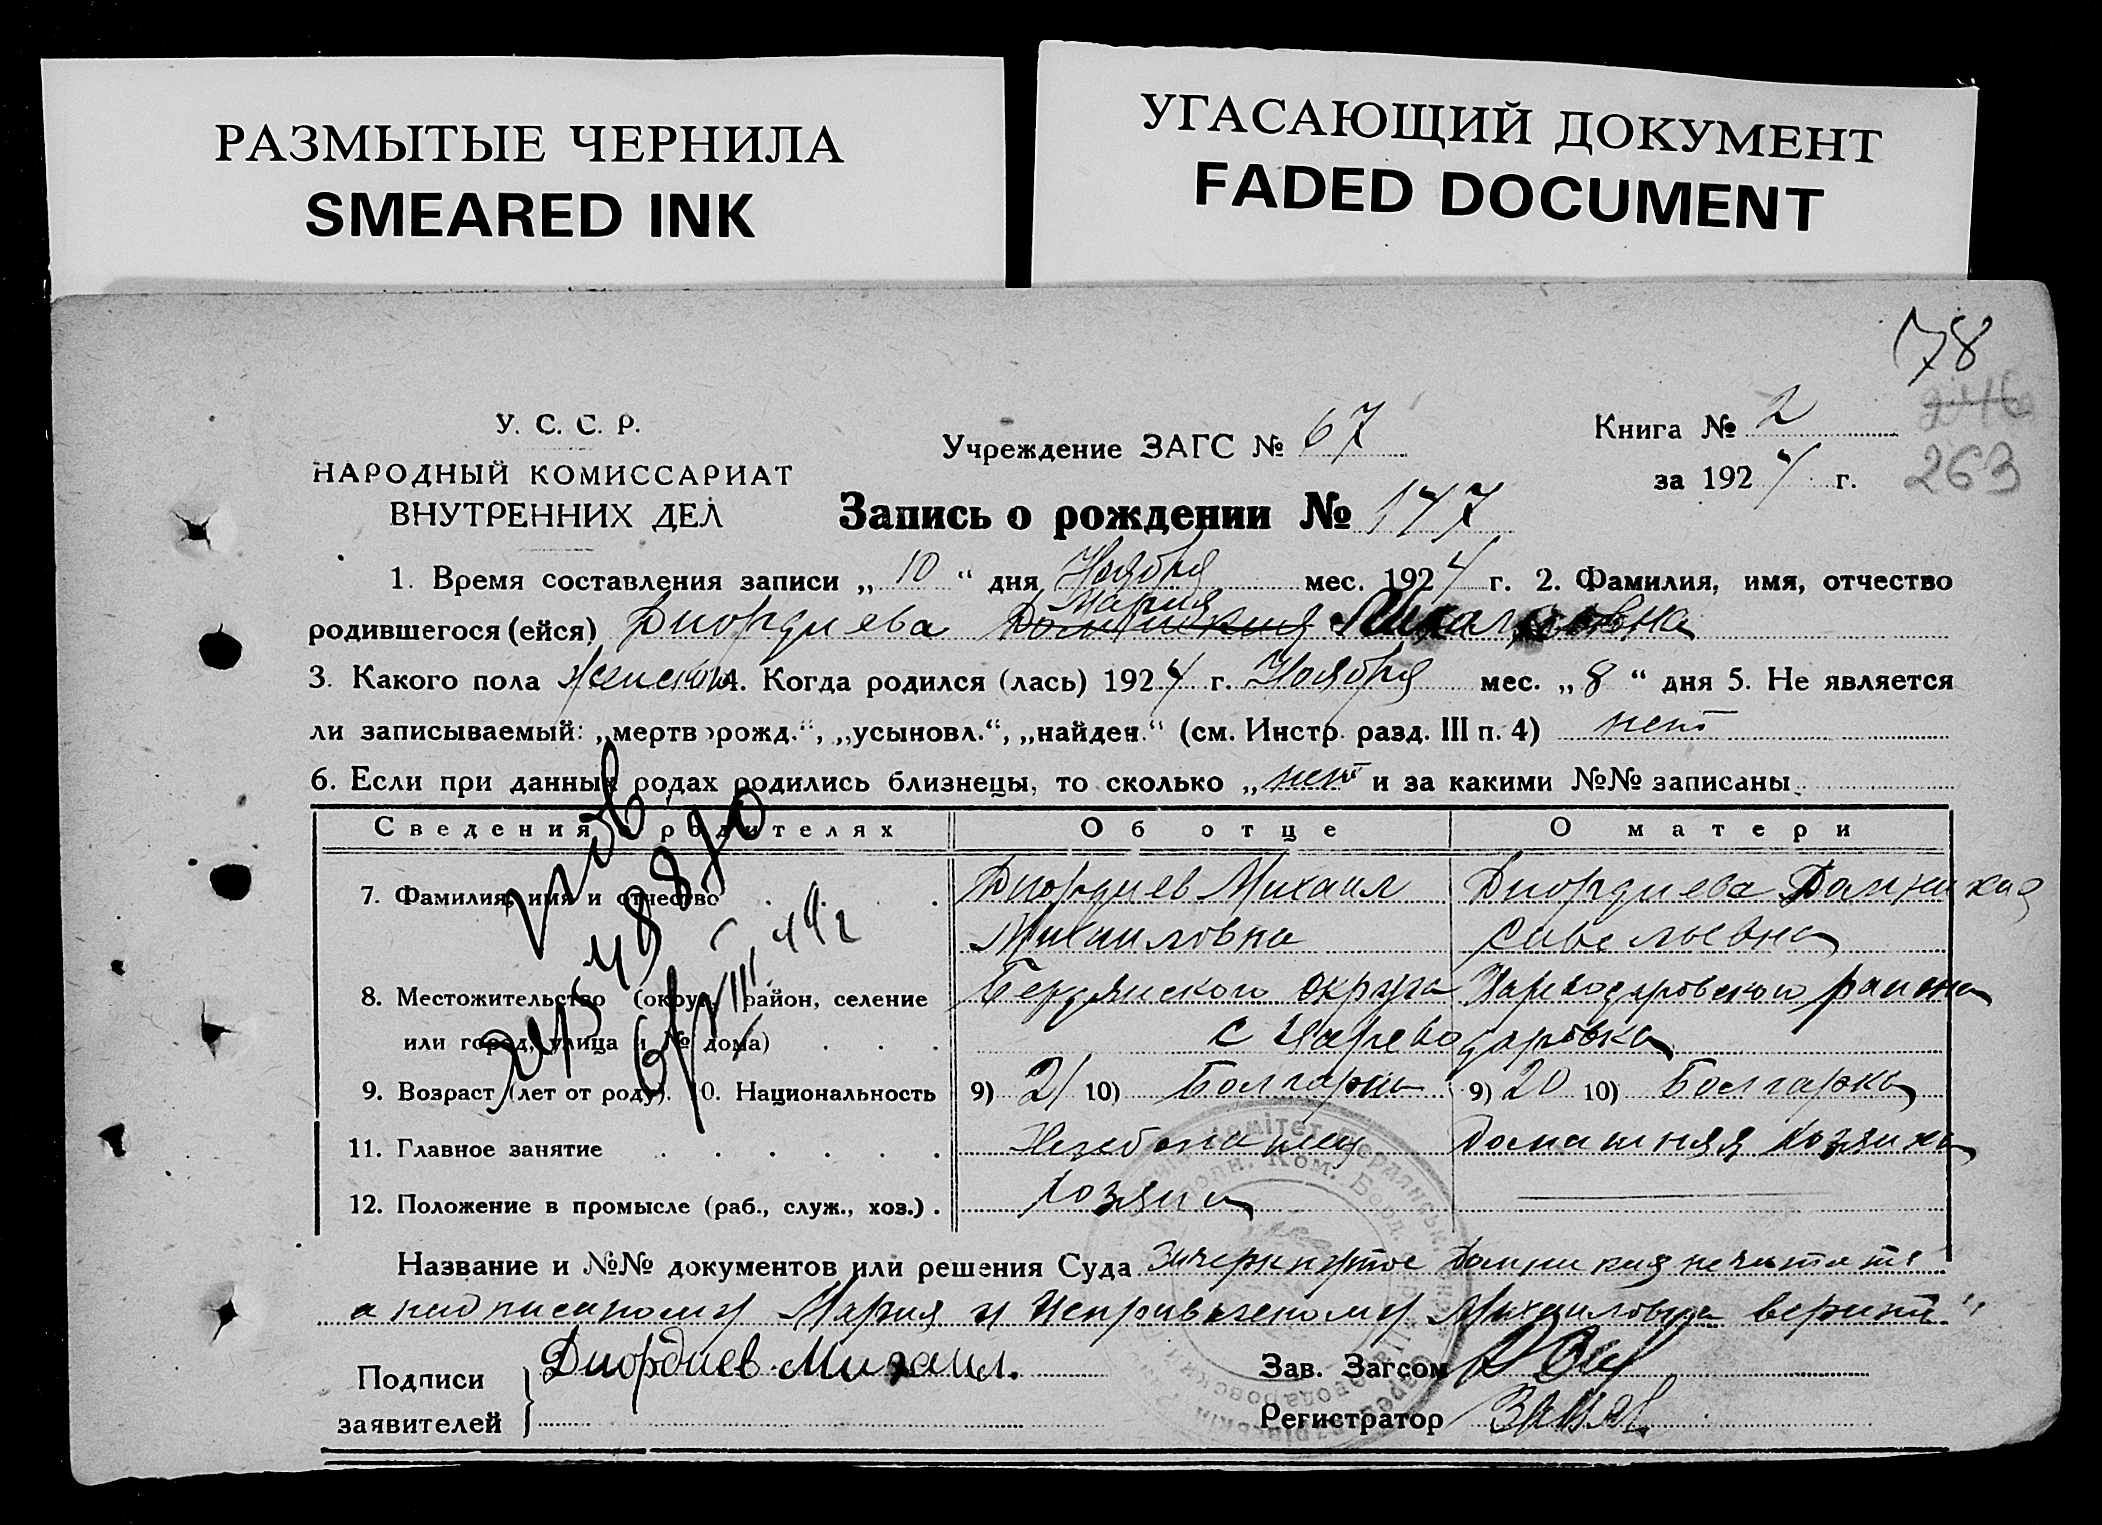 РАЗМЫТЫЕ ЧЕРНИЛА
SMEARED INK
УГАСАЮЩИЙ ДОКУМЕНТ
FADED DOCUMENT
78
263
У. С. С. Р.
НАРОДНЫЙ КОМИССАРИАТ
ВНУТРЕННИХ ДЕЛ
Учреждение ЗАГС № 67
Книга № 2
за 1924 г.
Запись о рождении № 147
1. Время составления записи „10“ дня Ноября мес. 1924 г. 2. Фамилия, имя, отчество
Мария
родившегося (ейся) Диордиева Домникия Михайловна
3. Какого пола женской 4. Когда родился (лась) 1924 г. Ноября мес. „8“ дня 5. Не является
ли записываемый: „мертворожд.“, „усыновл.“, „найден.“ (см. Инстр. разд. III п. 4) нет
6. Если при данных родах родились близнецы, то сколько „нет и за какими №№ записаны
Сведения о родителях Об отце О матери
7. Фамилия, имя и отчество Диордиев Михаил Диордиева Домникия
Михаиловна Савельевна
8. Местожительство (округ, район, селение Бердянского округа Цареводаровского района
или город, улица и № дома) с Цареводаровка
9. Возраст (лет от роду). 10. Национальность 9) 21 10) Болгарин 9) 20 10) Болгарка
11. Главное занятие Хлебопашец Домашняя хозяйка
12. Положение в промысле (раб., служ., хоз.) хозяин
Название и №№ документов или решения Суда Зачеркнутое Домникия нечитать
а надписаному Мария и Исправленому Михаиловна верить"
Подписи
заявителей
Диордиев Михаил.
Зав. Загсом
Регистратор